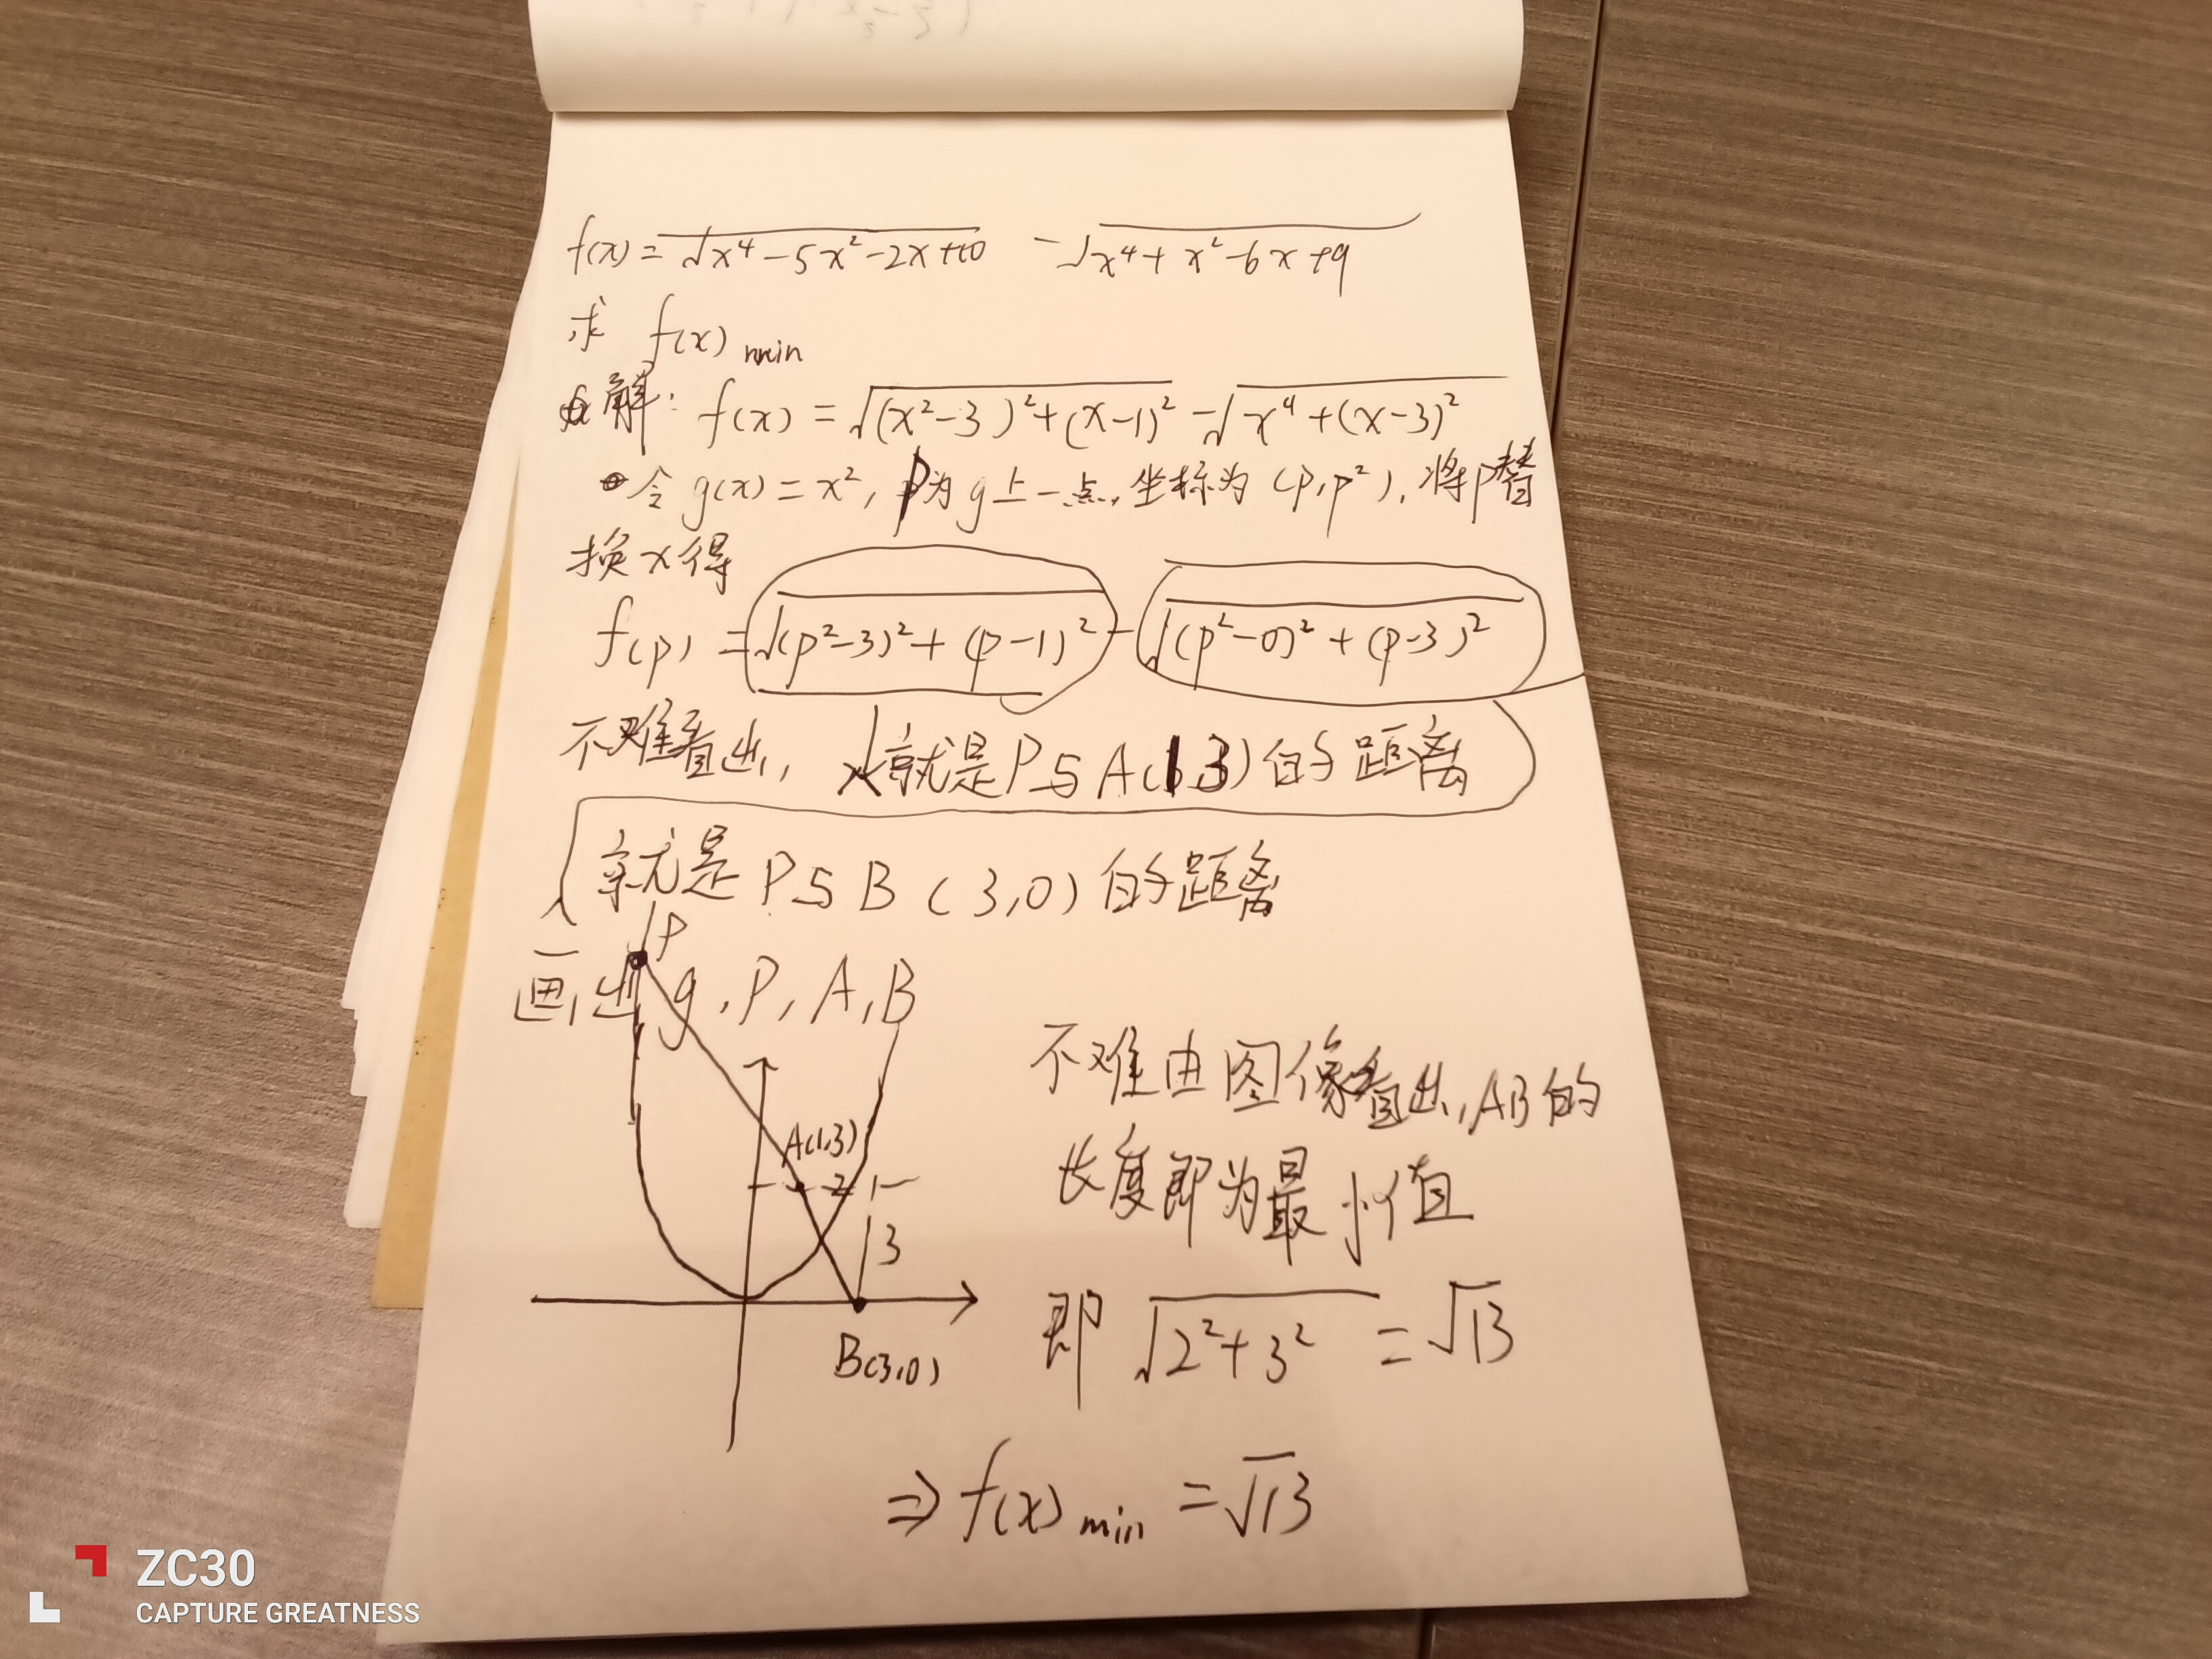 f(x) = √x⁴-5x²-2x+10 - √x⁴+x²-6x+9
求 f(x) min
解: f(x) = √(x²-3)²+(x-1)² - √x⁴+(x-3)²
令 g(x) = x², P为g上一点, 坐标为 (p,p²), 将p替
换x得
f(p) = √(p²-3)²+(p-1)² - √(p²-0)²+(p-3)²
不难看出, 就是P与A(1,3)的距离
就是P与B(3,0)的距离
画出g, P, A, B
P
A(1,3)
2
3
B(3,0)
不难由图像看出, AB的
长度即为最小值
即 √2²+3² = √13
⇒ f(x) min = √13
ZC30
CAPTURE GREATNESS